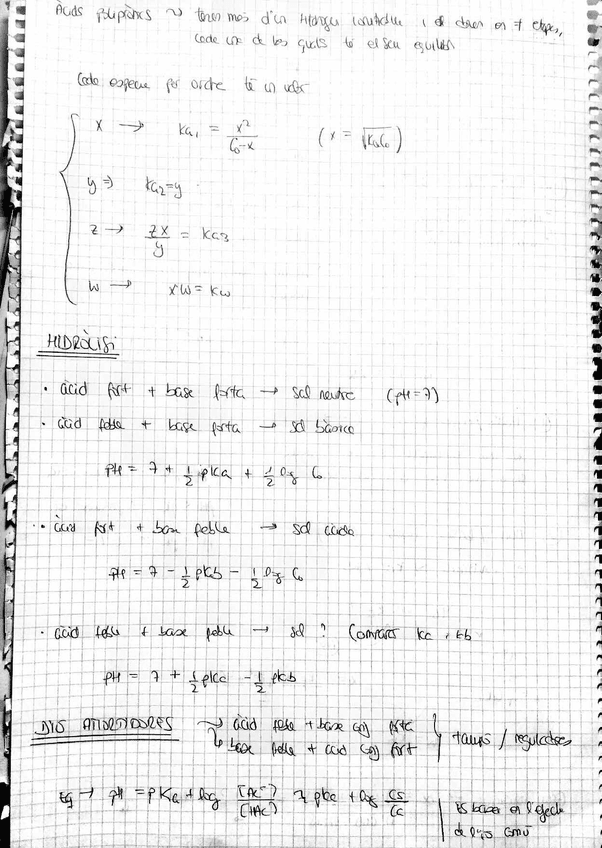 Àcids polipròtics ~> tenen més d'un hidrogen i es donen en ≠ etapes,
cada una de les quals té el seu equilibri
Cada espècie per ordre té un valor
x → Ka1 = x²/(Co-x) (x = √KaCo)
y ⇒ Ka2=y
z → zx/y = Ka3
w → xw = Kw
HIDRÒLISI
· àcid fort + base forta → sal neutre (pH=7)
· àcid feble + base forta → sal bàsica
pH = 7 + 1/2 pKa + 1/2 log Co
· àcid fort + base feble → sal àcida
pH = 7 - 1/2 pKb - 1/2 log Co
· àcid feble + base feble → sal ? Comparar Ka i Kb
pH = 7 + 1/2 pKa - 1/2 pKb
DIS AMORTIDORES → àcid feble + base conj forta
→ base feble + acid conj fort
tampó / reguladores
Eq → pH = pKa + log [Ac⁻]/[HAc] ≈ pKa + log Cs/Ca
es basen en l'efecte
de l'ió comú